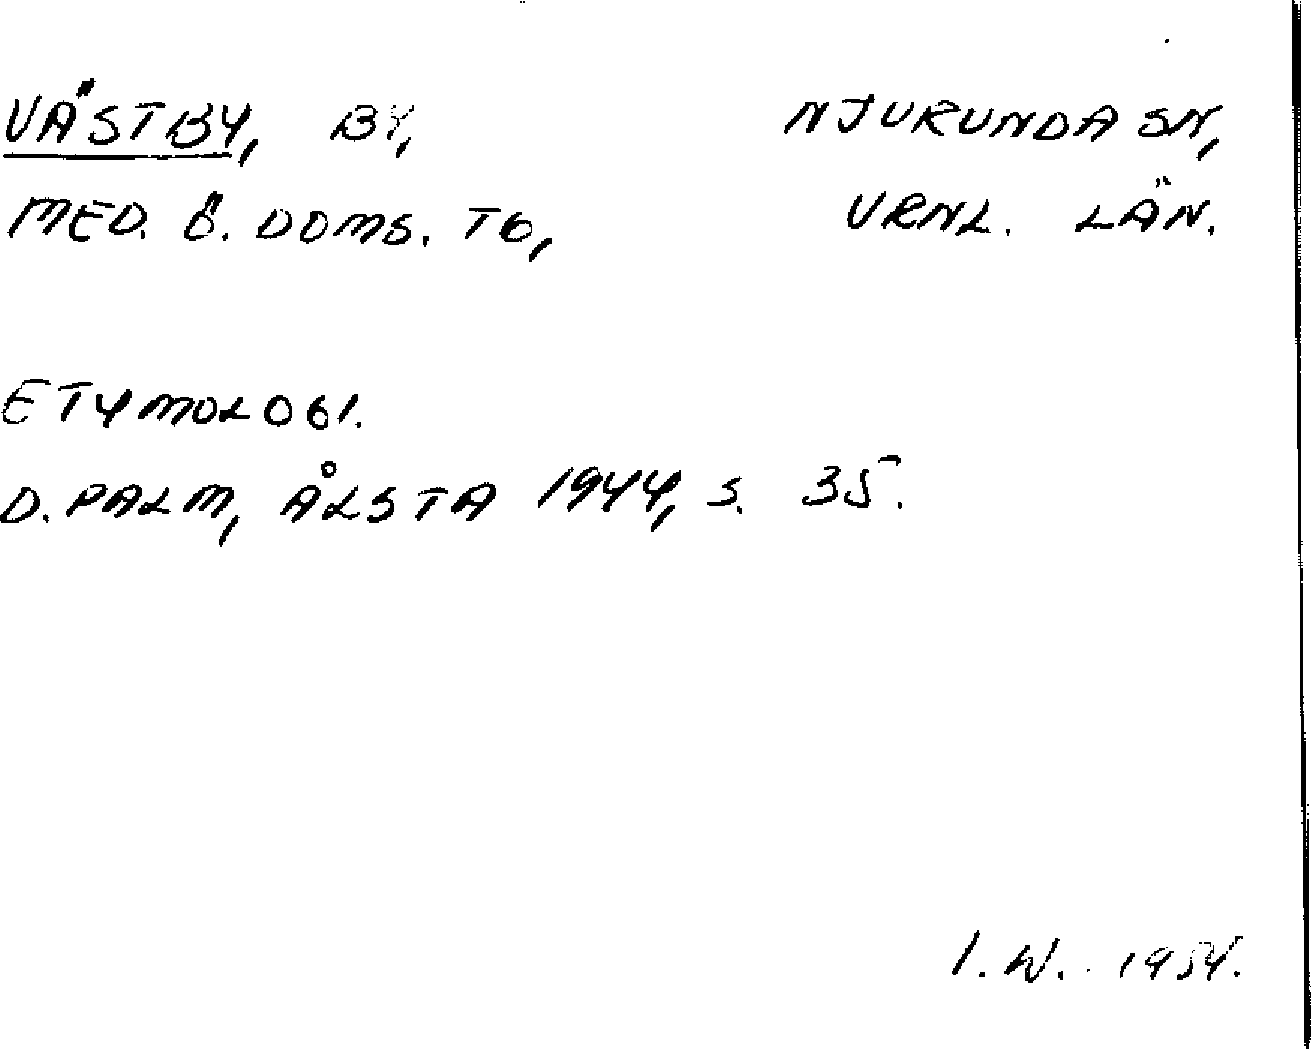 VÄSTBY, BY, NJURUNDA SN,
MED. Ö. DOMS. TG, VRNL. LÄN.
ETYMOLOGI.
D. PALM, ÅLSTA 1944, S. 35.
I. W. 1954.